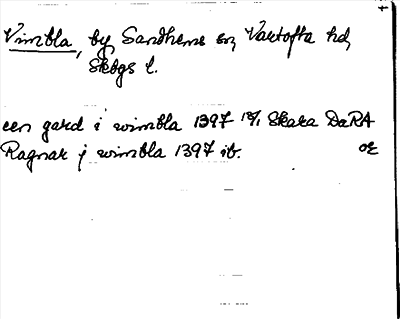 Vimbla, by, Sandhems sn, Vartofta hd,
Skbgs l.
een gard i wimbla 1397 18/1 Skara DaRA
Ragnar j wimbla 1397 ib. OE